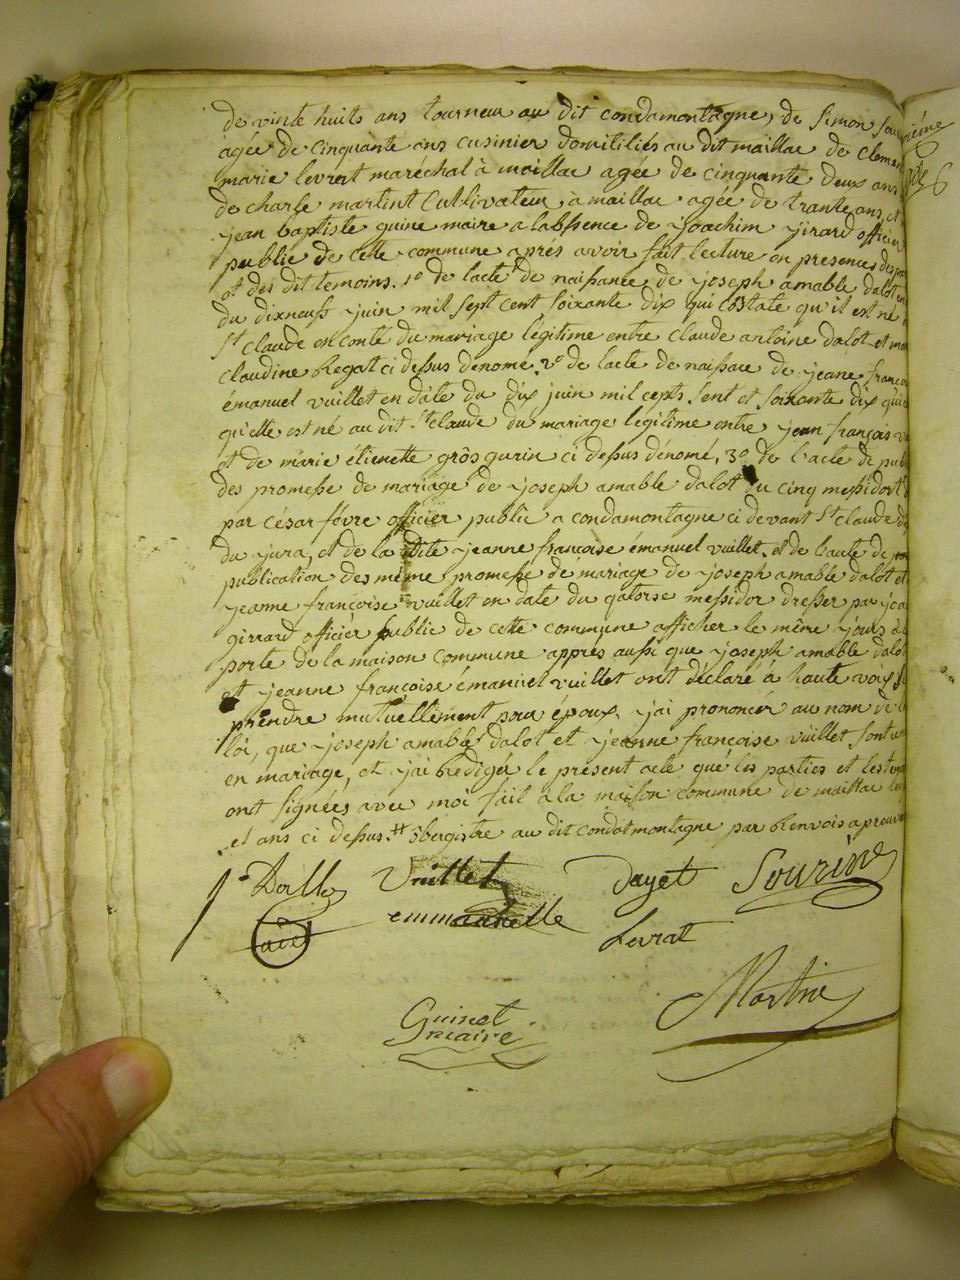 de vinte huits ans tourneur au dit condamontagne, de Simon Sou
agée de cinquante ans cusinier domitiliés au dit maillac de clemen
marie levrat maréchal à maillac agée de cinquante deux ans
de charle martint Cultivateur à maillac agée de trante ans, et
jean baptiste guine maire a labssence de joachim jirard officier
public de cette commune aprés avoir fait lecture en presences des par
et des dit temoins. 1º de lacte de naissance de joseph amable dalot en
du dixneuf juin mil sept cent soixante dix qui costate qu'il est né
St claude en conté du mariage légitime entre claude antoine dalot et mar
claudine Regat ci dessus dénomé. 2º de lacte de naissace de jeane françoi
émanuel vuillet en date du dix juin mil cepts Sent et soixante dix qui
qu'elle est né au dit St claude du mariage légitime entre jean françois v
et de marie étienette grôs gurin ci dessus dénomé, 3º de l'acte de publ
des promesse de mariage de joseph amable dalot du cinq messidort
par césar févre officier public a condamontagne ci devant St claude
du jura, et de la dite jeanne françoise émanuel vuillet, et de l'aute de
publication des même promesse de mariage de joseph amable dalot et
jeanne françoise vuillet en date du qatorse messidor dresser par joa
girrard officiér public de cette commune afficher le même jours à
porte de la maison commune apprés aussi que joseph amable dalot
et jeanne françoise émanuel vuillet ont déclaré à haute voix
prendre mutuellement pour époux, j'ai prononcér au nom de
loi, que joseph amable dalot et jeanne françoise vuillet sont
en mariage, et j'ai Rediger le présent acte qué les parties et les tem
ont signées avec moi fait à la maison commune de maillac les
et ans ci dessus. au dit condatmontagne par Renvois aprouv
Vuillet dayet Sourine
emmanuelle Levrat
Martin
Guinet
maire